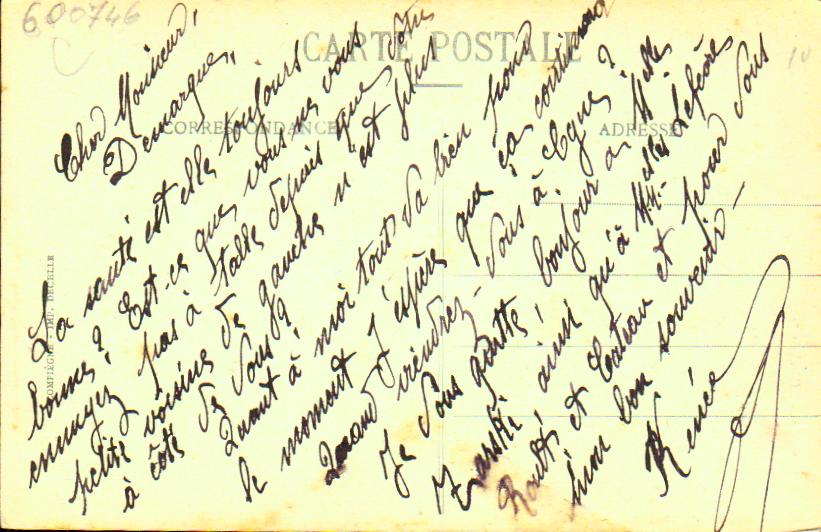 600746
CARTE POSTALE
CORRESPONDANCE
ADRESSE
COMPIÈGNE - IMP. DECELLE
Cher Monsieur,
Demarque,
La santé est elle toujours
bonne? Est-ce que vous ne vous
ennuyez pas à table depuis que votre
petite voisine de gauche n'est plus
à côté de vous?
Quant à moi tout va bien pour
le moment j'espère que ça continuera
Quand viendrez-vous à ?
Je vous quitte, bonjour à Melle
ainsi qu'à M.M. Lefèvre
et Cateau et pour vous
mon bon souvenir-
Renée